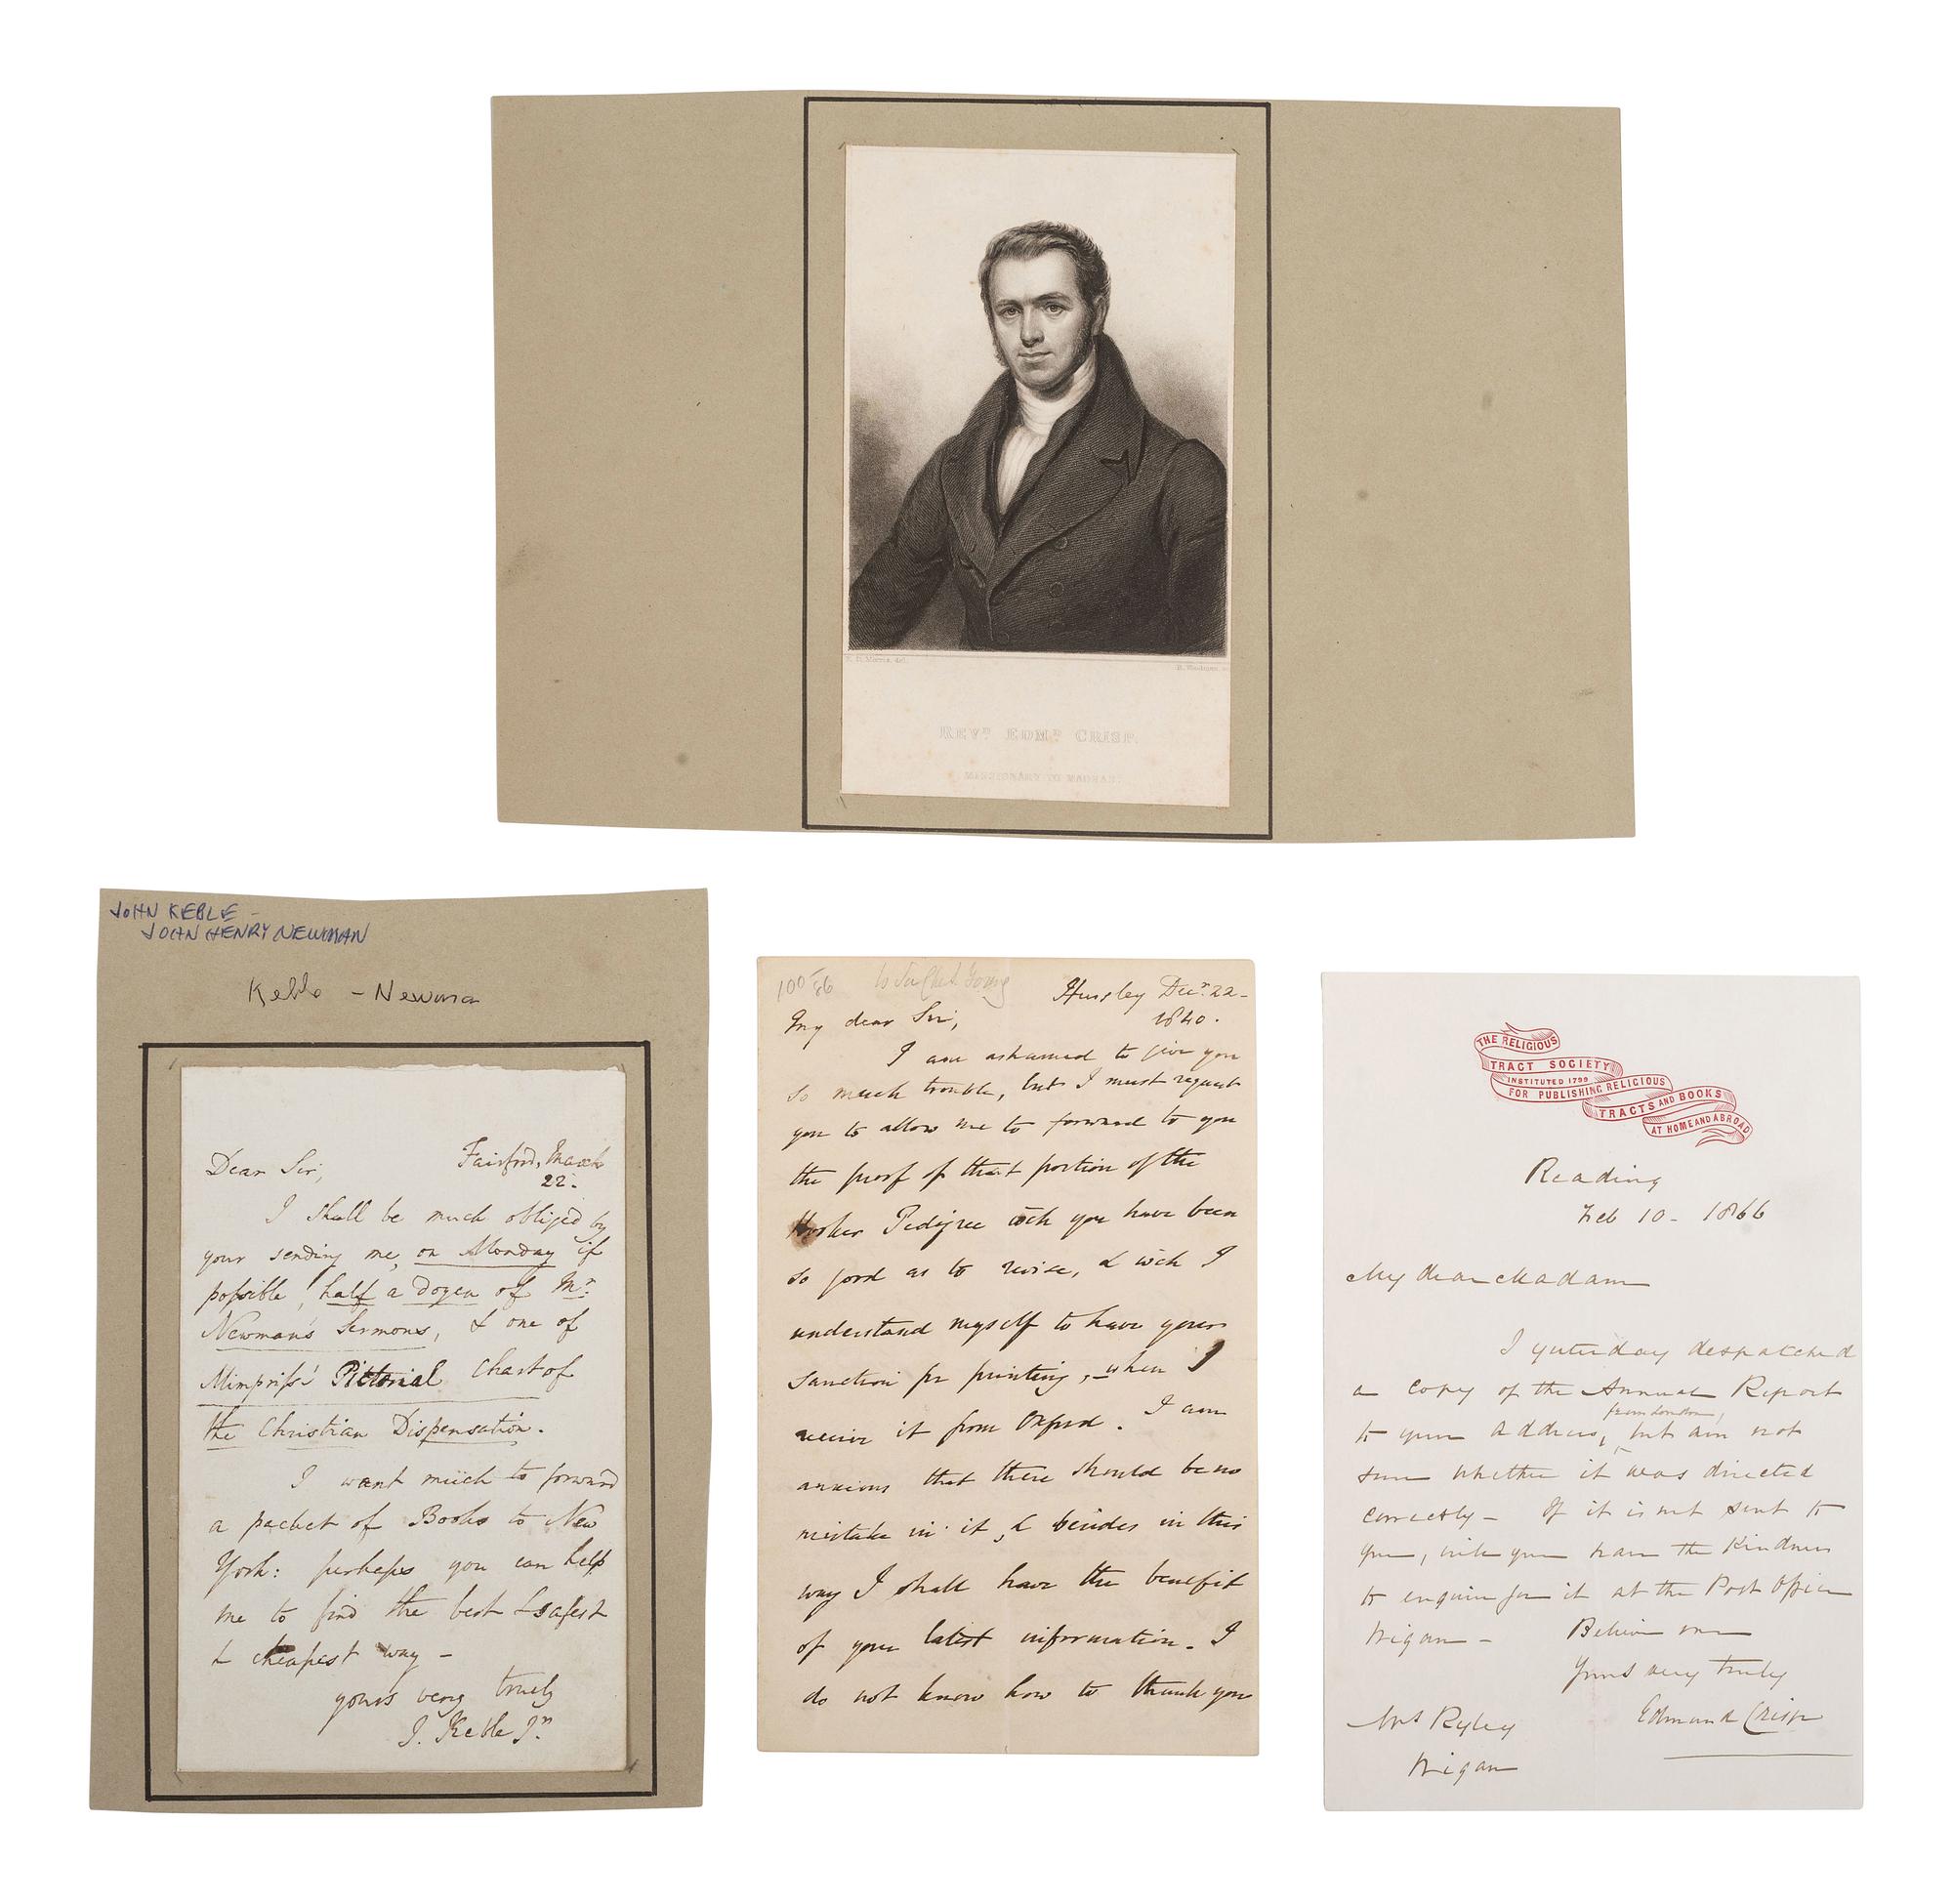 REVD. EDMD. CRISP.
MISSIONARY TO MADRAS.
JOHN KEBLE -
JOHN HENRY NEWMAN
Keble - Newman
Fairford, March
22.
Dear Sir,
I shall be much obliged by
your sending me, on Monday if
possible, half a dozen of Mr.
Newman's Sermons, & one of
Mimpriss' Pictorial Chart of
the Christian Dispensation.
I want much to forward
a packet of Books to New
York: perhaps you can help
me to find the best & safest
& cheapest way -
yours very truly
J. Keble Jn.
Hursley Decr. 22-
1840.
My dear Sir,
I am ashamed to give you
so much trouble, but I must request
you to allow me to forward to you
the proof of that portion of the
Hooker Pedigree wch you have been
so good as to revise, & wch I
understand myself to have your
sanction for printing, when I
receive it from Oxford. I am
anxious that there should be no
mistake in it, & besides in this
way I shall have the benefit
of your latest information. I
do not know how to thank you
THE RELIGIOUS
TRACT SOCIETY
INSTITUTED 1799
FOR PUBLISHING RELIGIOUS
TRACTS AND BOOKS
AT HOME AND ABROAD
Reading
Feb 10 - 1866
My dear Madam
I yesterday despatched
a copy of the Annual Report
from London,
to your address, but am not
sure whether it was directed
correctly - If it is not sent to
you, will you have the kindness
to enquire for it at the Post Office
Wigan - Believe me
Yours very truly
Edmund Crisp
Mrs Ryley
Wigan